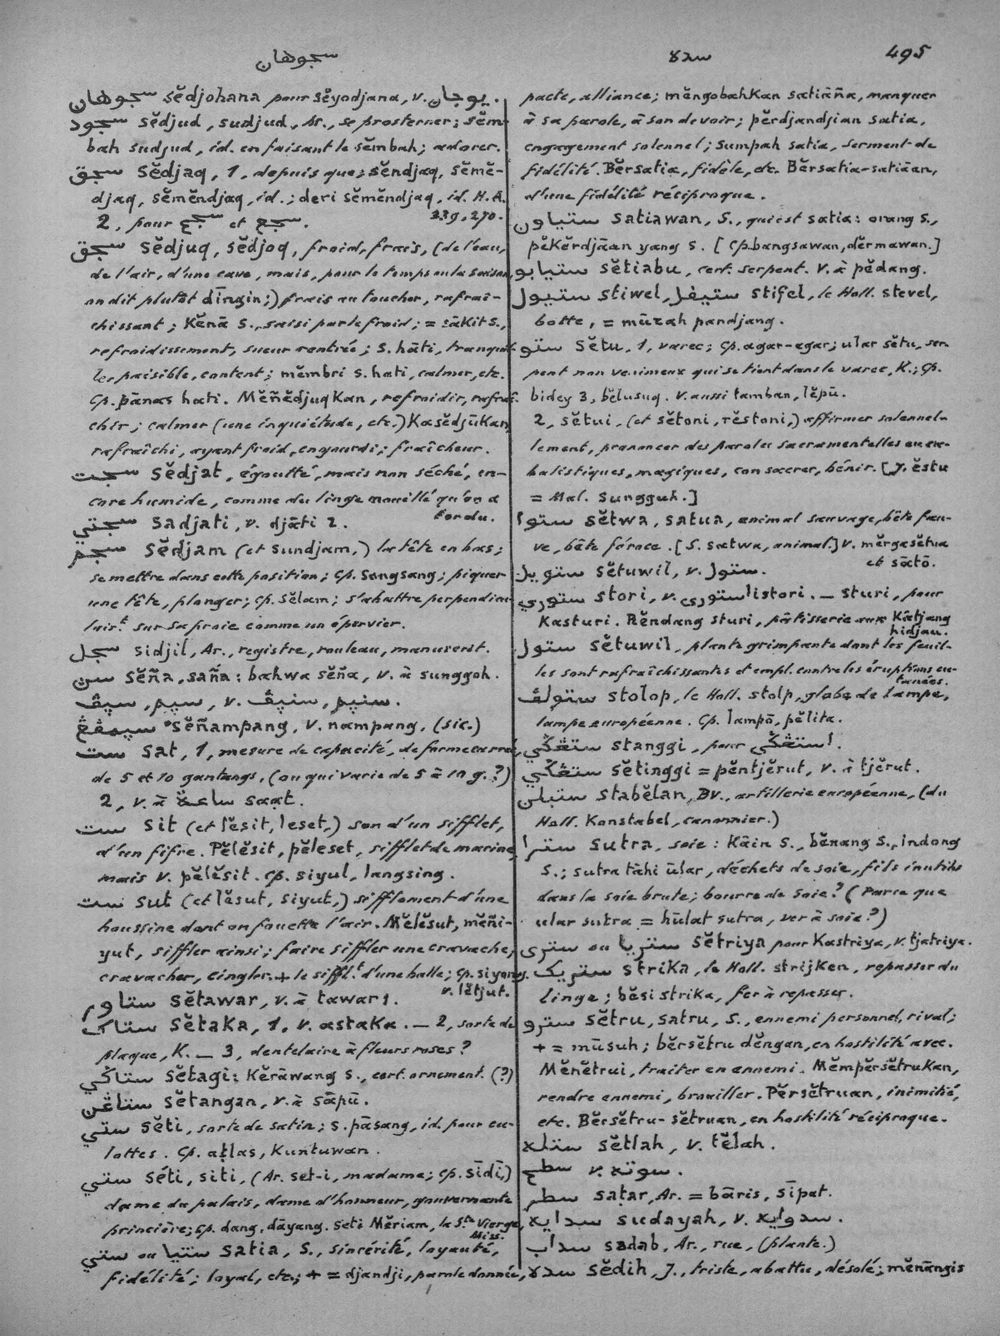 سجوهان
سده
495
سجوهان sĕdjohana pour sĕyodjana, v. يوجان.
سجود sĕdjud, sudjud, Ar., se prosterner; sĕm-
bah sudjud, id. en faisant le sĕmbah; adorer.
سجق sĕdjaq, 1, depuis que; sĕndjaq, sĕmĕ-
djaq, sĕmĕndjaq, id.; deri sĕmĕndjaq, id. H.A.
239, 270.
2, pour سجع et سجع.
سجق sĕdjuq, sĕdjoq, froid, frais, (de l'eau,
de l'air, d'une cave, mais, pour le temps ou la saison,
on dit plutôt dīngin;) frais au toucher, rafraî-
chissant; kĕnā s., saisi par le froid; = sākit s.,
refroidissement, sueur rentrée; s. hāti, tranquil-
le, paisible, content; mĕmbri s. hati, calmer, etc.
Cp. pānas hati. Mĕñĕdjuqkan, refroidir, rafraî-
chir; calmer (une inquiétude, etc.) Kasĕdjūkan,
rafraîchi, ayant froid, engourdi; fraîcheur.
سجت sĕdjat, égoutté, mais non séché, en-
core humide, comme du linge mouillé qu'on a
tordu.
سجتي sadjati, v. djāti 2.
سجم sĕdjam (et sundjam,) la tête en bas;
se mettre dans cette position; cp. songsang; piquer
une tête, plonger; cp. sĕlam; s'abattre perpendicu-
lairt. sur sa proie comme un épervier.
سجل sidjil, Ar., registre, rouleau, manuscrit.
سن sĕña, saña: bahwa sĕña, v. à sunggoh.
سيم, سيڤ, v. سنيم, سنيڤ.
سيمڤڠ sĕñampang, v. nampang, (sic.)
ست sat, 1, mesure de capacité, de forme carrée,
de 5 et 10 gantangs, (ou qui varie de 5 à 10 g.?)
2, v. à ساعة saat.
ست sit (et lĕsit, leset,) son d'un sifflet,
d'un fifre. Pĕlĕsit, pĕleset, sifflet de marine,
mais v. pĕlĕsit. cp. siyul, langsing.
ست sut (et lĕsut, siyut,) sifflement d'une
houssine dont on fouette l'air. Mĕlĕsut, mĕñi-
yut, siffler ainsi; faire siffler une cravache,
cravacher, cingler. + le siffl.t d'une balle; cp. siyong.
v. lĕtjut.
ستاور sĕtawar, v. à tawar 1.
ستاک sĕtaka, 1, v. astaka. — 2, sorte de
plaque, K. — 3, dentelaire à fleurs roses?
ستاݢي sĕtagi: kĕrāwang s., cert. ornement. (?)
ستاڠن sĕtangan, v. à sāpū.
ستي sĕti, sorte de satin; s. pāsang, id. pour cu-
lottes. Cp. aṭlas, Kuntuwan.
ستي séti, siti, (Ar. set-i, madame; cp. sīdī,)
dame du palais, dame d'honneur, gouvernante
princière; cp. dang, dāyang. Seti Mĕriam, la Ste Vierge,
Miss.
ستي ou ستيا satia, S., sincérité, loyauté,
fidélité; loyal, etc.; + = djandji, parole donnée,
pacte, alliance; mĕngobahkan satiāña, manquer
à sa parole, à son devoir; pĕrdjandjian satia,
engagement solennel; sumpah satia, serment de
fidélité. Bĕrsatia, fidèle, etc. Bĕrsatia-satiāan,
d'une fidélité réciproque.
ستياون satiawan, S., qui est satia: orang s.,
pĕkĕrdjāan yang s. [Cp. bangsawan, dĕrmawan.]
ستيابو sĕtiabu, cert. serpent. v. à pĕdang.
ستيول stiwel, ستيفل stifel, le Holl. stevel,
botte, = mūzah pandjang.
ستو sĕtu, 1, varec; cp. agar-agar; ular sĕtu, ser-
pent non venimeux qui se tient dans le varec, K.; cp.
bidey 3, bĕlusuq. v. aussi tamban, lĕpū.
2, sĕtui, (et sĕtoni, rĕstoni,) affirmer solennel-
lement, prononcer des paroles sacramentelles ou ca-
balistiques, magiques, consacrer, bénir. [J. ĕstu
= Mal. sungguh.]
ستوا sĕtwa, satua, animal sauvage, bête fau-
ve, bête féroce. [S. satwa, animal.] v. mĕrgasĕtua
et sātō.
ستويل sĕtuwil, v. ستول.
ستوري stori, v. استوري istori. — sturi, pour
Kasturi. Rĕndang sturi, pâtisserie aux Kātjang
hidjau.
ستول sĕtuwil, plante grimpante dont les feuil-
les sont rafraîchissantes et empl. contre les éruptions cu-
tanées.
ستولڤ stolop, le Holl. stolp, globe de lampe,
lampe européenne. Cp. lampō, pĕlita.
ستڠݢي stanggi, pour استڠݢي.
ستڠݢي sĕtinggi = pĕntjĕrut, v. à tjĕrut.
ستبلن stabĕlan, Bv., artillerie européenne, (du
Holl. Konstabel, canonnier.)
سترا sutra, soie: Kāin s., bĕnang s., indong
s.; sutra tāhi ūlar, déchets de soie, fils inutiles
dans la soie brute; bourre de soie? (Parce que
ular sutra = hūlat sutra, ver à soie?)
سترى ou ستريا sĕtriya pour Kastriya, v. tjatriya.
ستريک strika, le Holl. strijken, repasser du
linge; bĕsi strika, fer à repasser.
سترو sĕtru, satru, S., ennemi personnel, rival;
+ = mūsuh; bĕrsĕtru dĕngan, en hostilité avec.
Mĕnĕtrui, traiter en ennemi. Mĕmpĕrsĕtrukan,
rendre ennemi, brouiller. Pĕrsĕtruan, inimitié,
etc. Bĕrsĕtru-sĕtruan, en hostilité réciproque.
ستله sĕtlah, v. tĕlah.
سطح v. سوته.
سطر satar, Ar. = bāris, sīpat.
سدايه sudayah, v. سدوايه.
سداب sadab, Ar., rue, (plante.)
سده sĕdih, J., triste, abattu, désolé; mĕnāngis